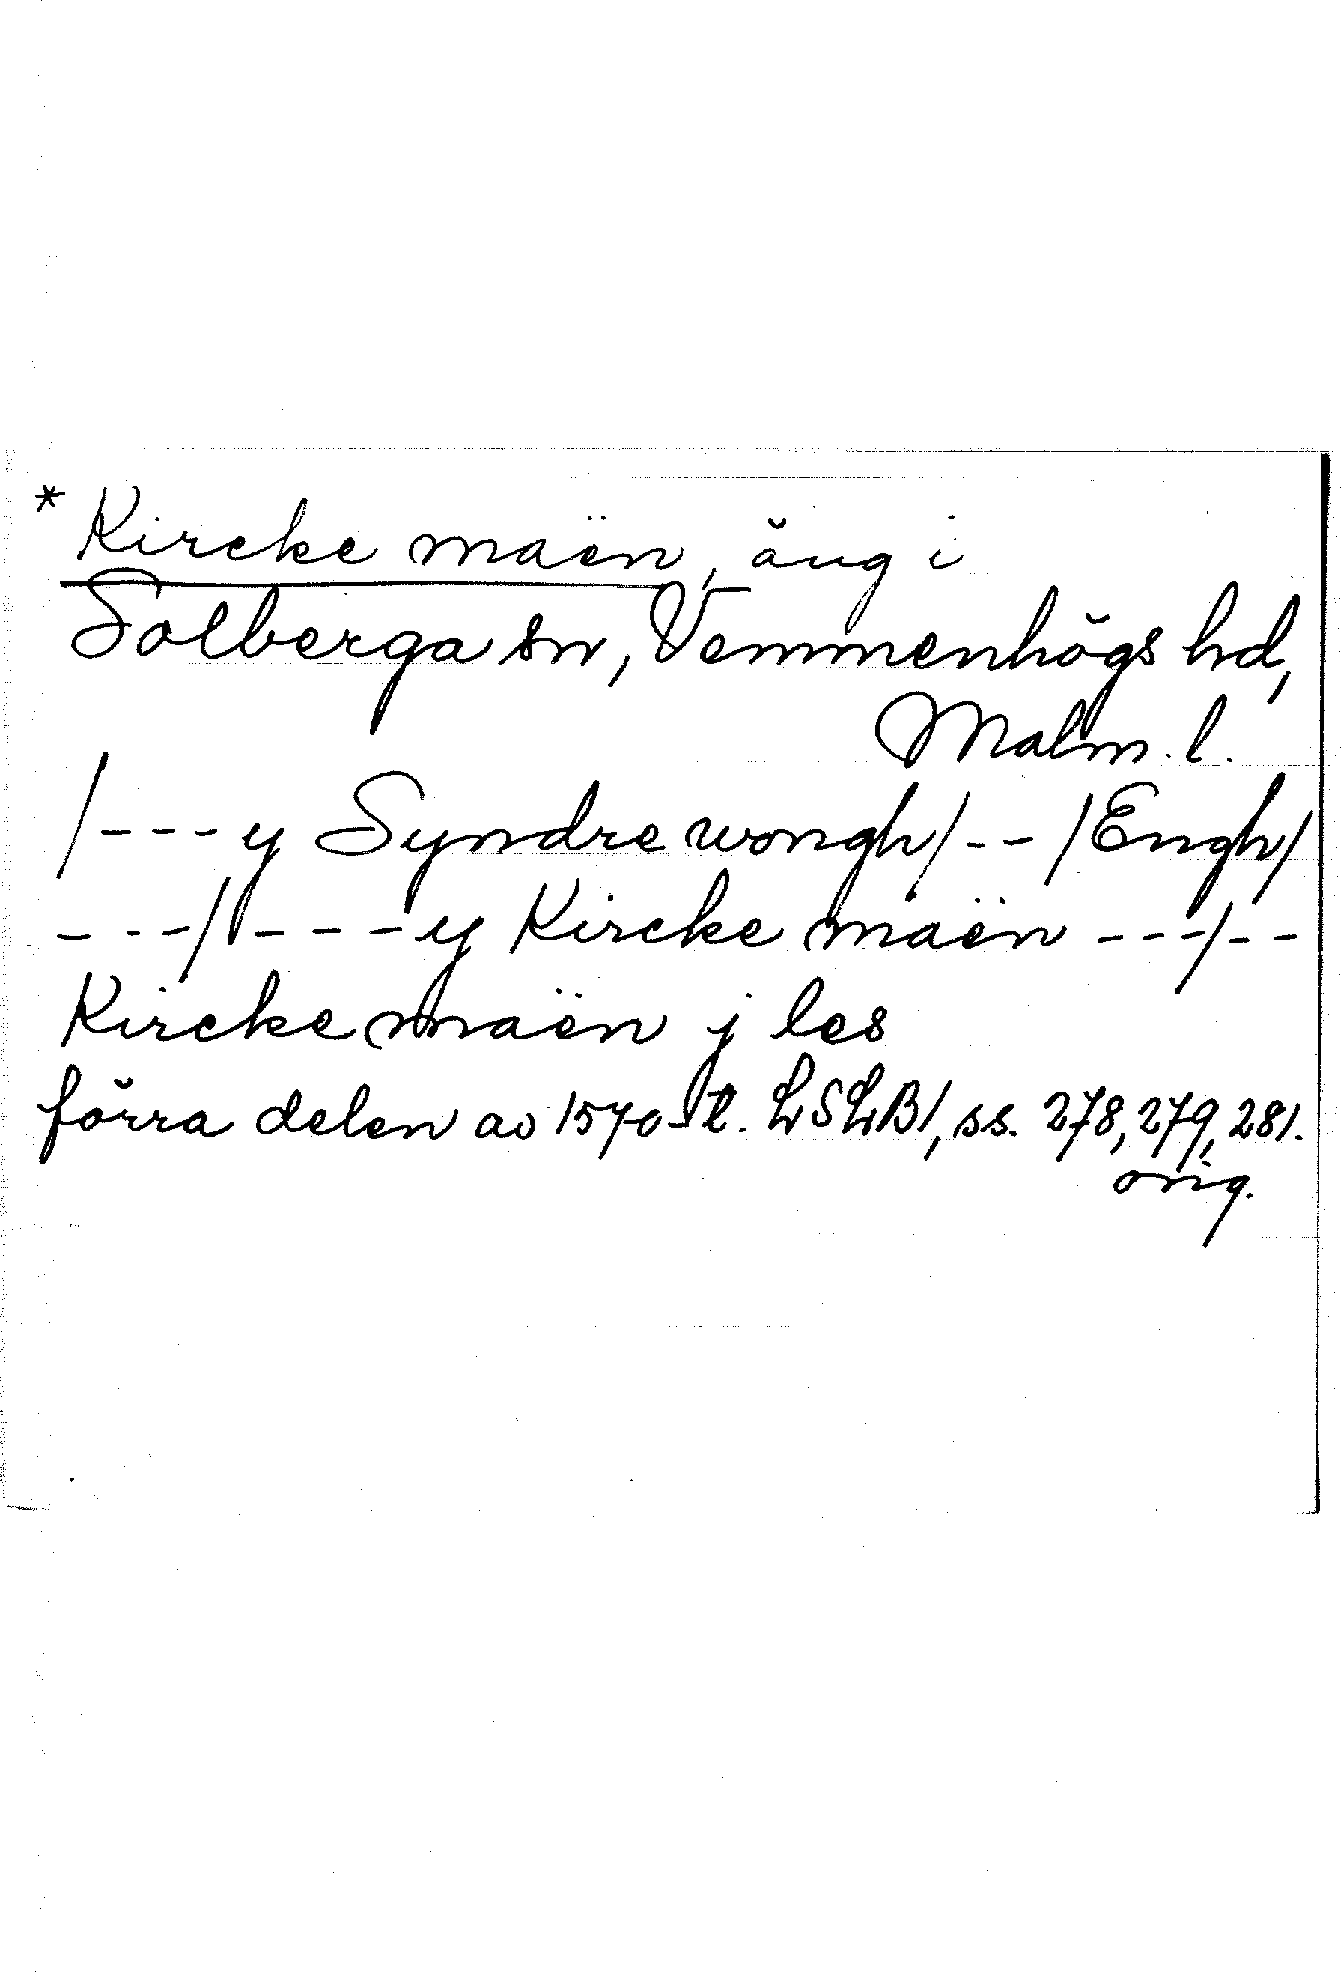 * Kircke maën, äng i
Solberga sn, Vemmenhögs hd,
Malm. l.
/---y Syndre wongh/--/Engh/
---/---y Kircke maën ---/--
Kircke maën j les
förra delen av 1570-t. LSLB1, ss. 278, 279, 281.
orig.